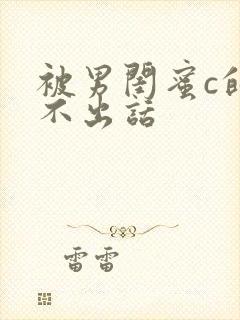 被男閨蜜c的
不出話
雷雷